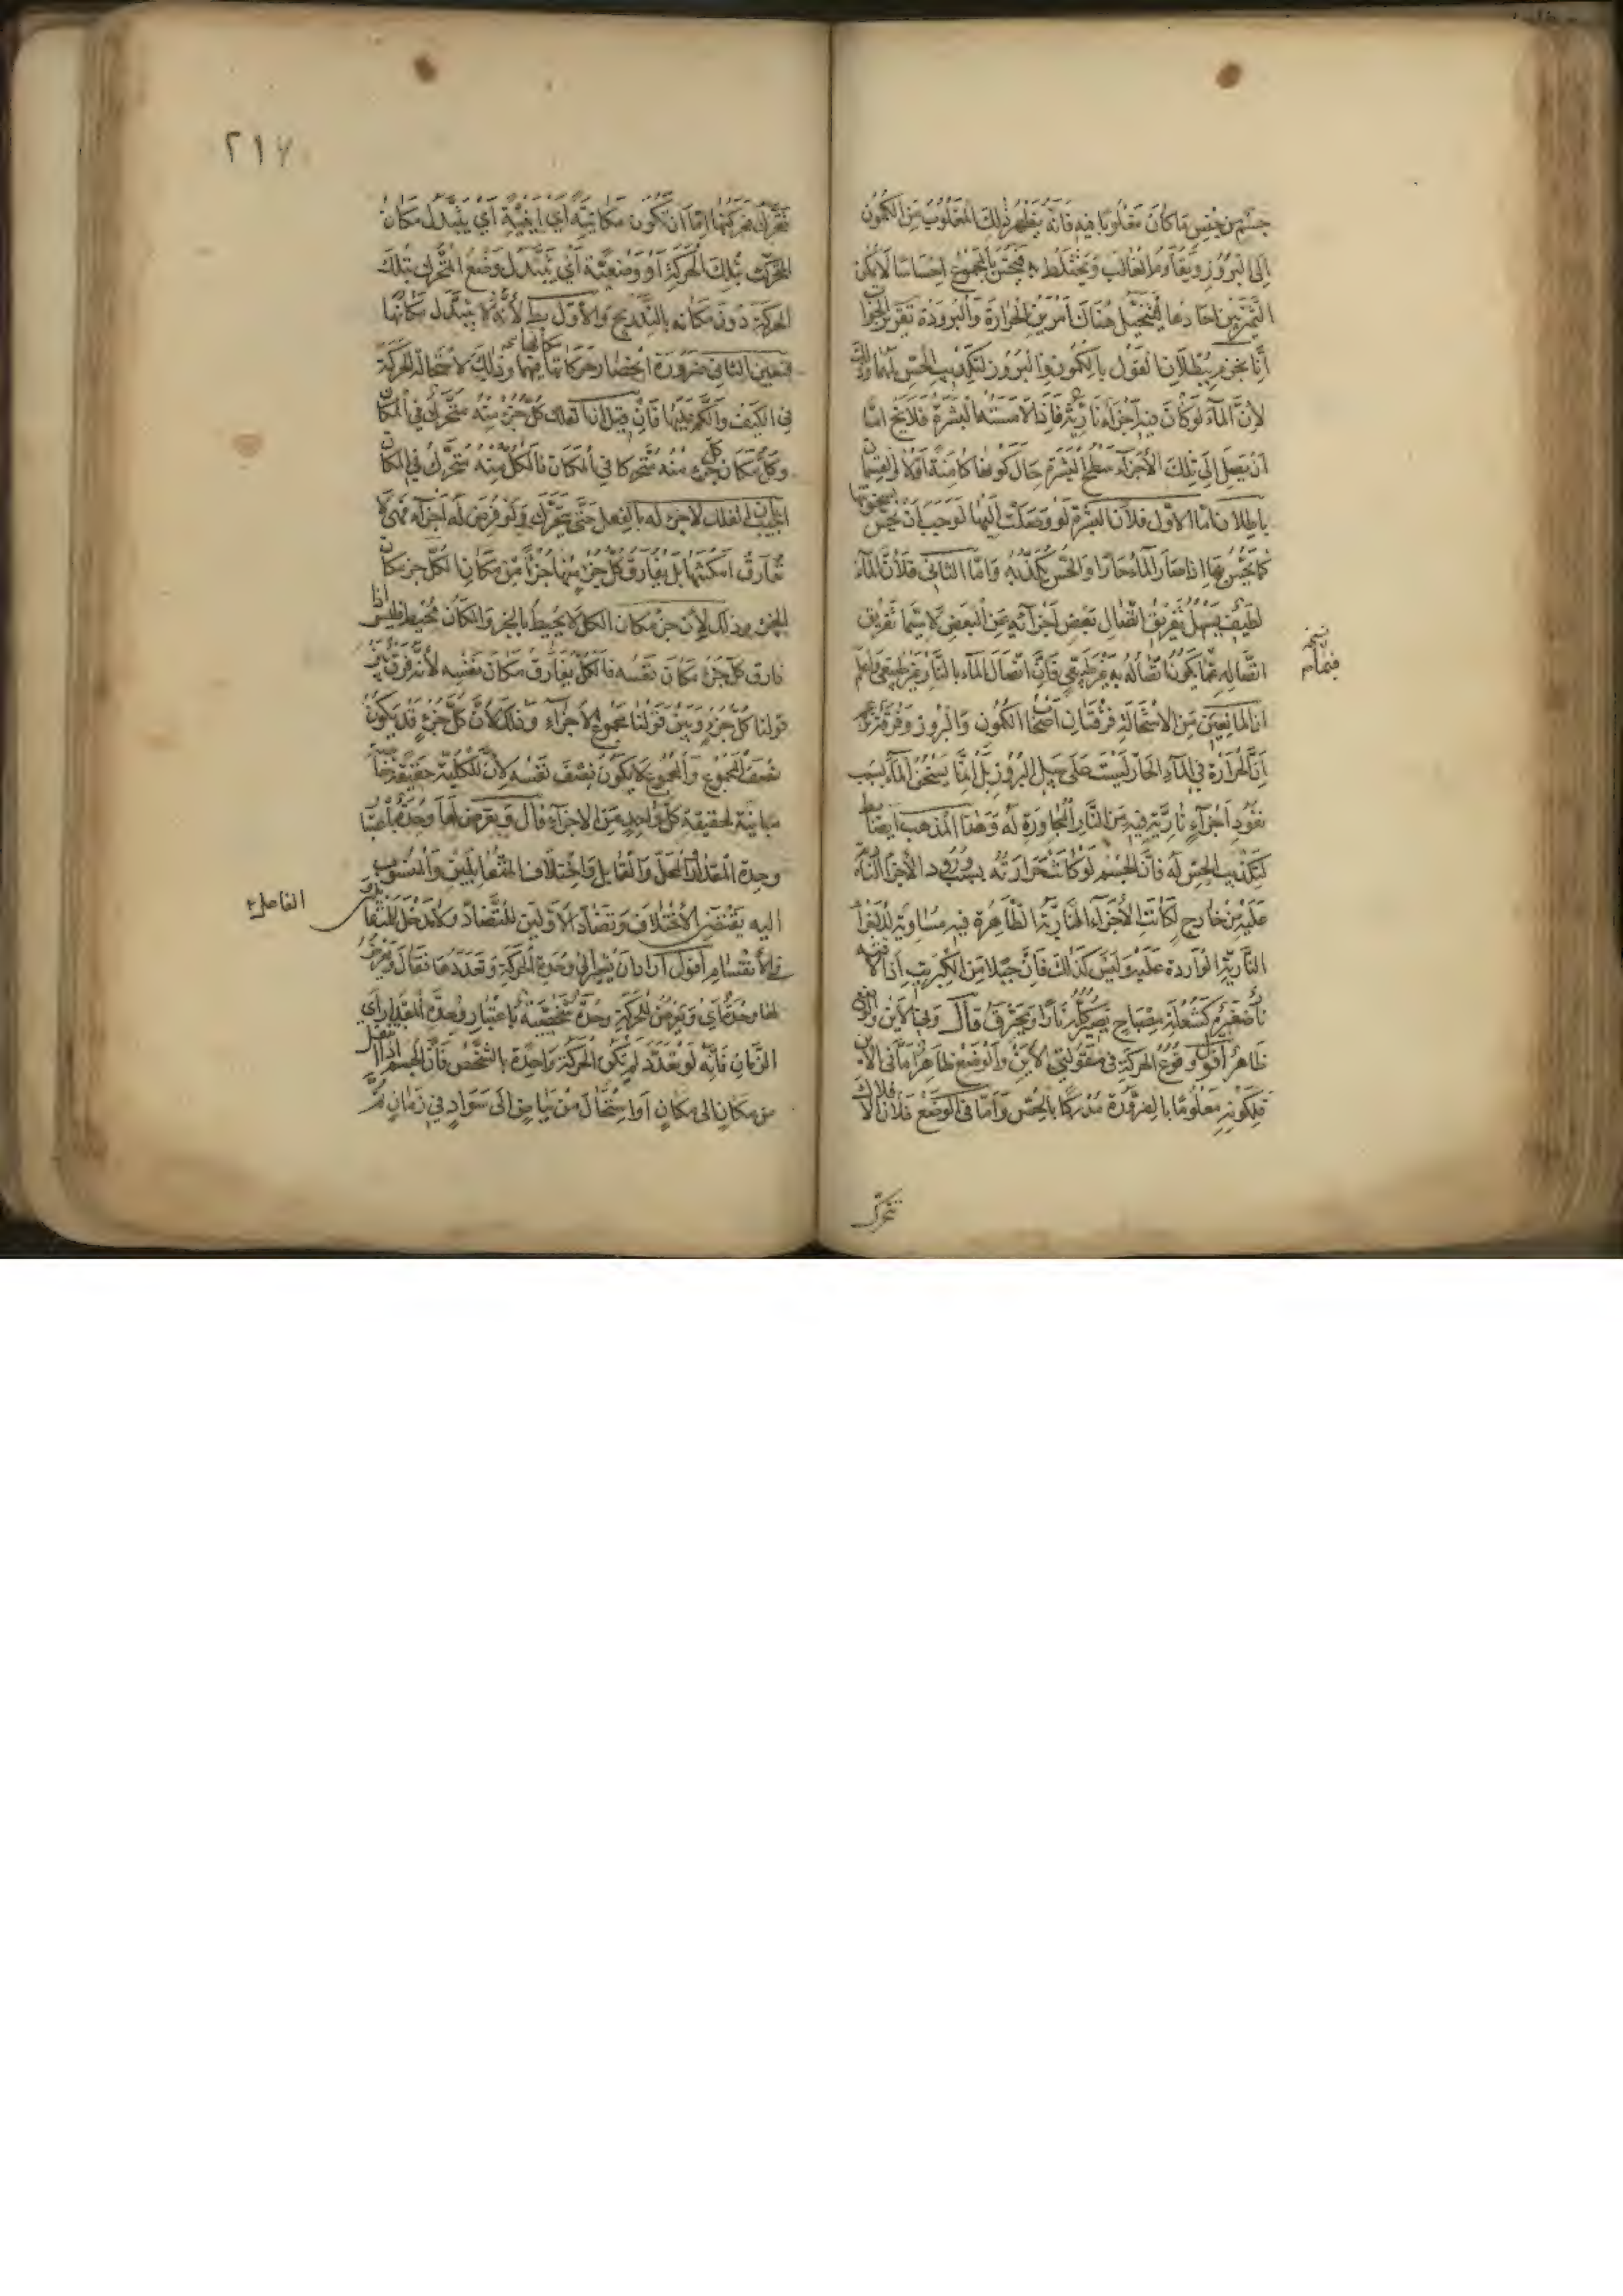 جسم من جنس ما كان مغلوبا فيه فانه يظهر ذلك المغلوب من الكمون
الى البروز ويقاوم الغالب ويختلط به فيحس بالمجموع احساسا لا يمكن
التمييز بين احادها فيتخيل هناك امر بين الحرارة والبرودة تقرير الجواب
انا نجزم ببطلان القول بالكمون والبروز لتكذيب الحس لهما وذلك
لأن الماء لو كان فيه اجزاء نارية فاذا لامسته البشرة فلا يخ اما
ان يصل الى تلك الأجزاء سطح البشرة حال كونها كامنة اولا والقسمان
باطلان اما الاول فلأن البشرة لو وصلت اليها لوجب ان يحس بسخونتها
كما يحس بها اذا صار الماء حارا والحس يكذبه واما الثاني فلأن الماء
لطيف يسهل تفريق اتصال بعض اجزائه عن البعض لا سيما تفريق
اتصاله عما يكون اتصاله به غير طبيعي فان اتصال الماء بالنار غير طبيعي واعلم
ان المانعين من الاستحالة فرقتان اصحاب الكمون والبروز وفرقة تزعم
ان الحرارة في الماء الحار ليست على سبيل البروز بل انما يسخن الماء بسبب
نفوذ اجزاء نارية فيه من النار المجاورة له وهذا المذهب ايضا بط
لتكذيب الحس له فان الجسم لو كانت حرارته بسبب ورود الأجزاء النارية
عليه من خارج لكانت الأجزاء النارية الظاهرة فيه مساوية للأجزاء
النارية الواردة عليه وليس كذلك فان جبلا من الكبريت اذا لاقته
نار صغيرة كشعلة مصباح يصير كله نارا ويحترق قال وفي الأين والوضع
ظاهر اقول وقوع الحركة في مقولتي الأين والوضع ظاهر اما في الأين
فلكونه معلوما بالضرورة مدركا بالحس واما في الوضع فلأن الأفلاك
تتحرك
نسخة
فيهما
٢١٧
تتحرك فحركتها اما ان تكون مكانية اي اينية اي يتبدل مكان
المتحرك بتلك الحركة او وضعية اي يتبدل وضع المتحرك بتلك
الحركة دون مكانه بالتدريج والأول بط لأنه لا يتبدل مكانها
فتعين الثاني ضرورة انحصار حركاتها فيهما وذلك لاستحالة الحركة
في الكيف والكم عليها فان قيل الفلك كل جزء منه متحرك في المكان
وكل ما كان كل جزء منه متحركا في المكان فالكل منه متحرك في المكان
اجيب بان الفلك لا جزء له بالفعل حتى يتحرك ولو فرض له اجزاء فهي لا
تفارق امكنتها بل يفارق كل جزء منها جزءا من مكان الكل جزء مكان
الجزء وذلك لأن جزء مكان الكل لا يحيط بالجزء والمكان محيط فليس اذا
فارق كل جزء مكان نفسه فالكل يفارق مكان نفسه لأنه فرق بين
قولنا كل جزء وبين قولنا مجموع الأجزاء وذلك لأن كل جزء قد يكون
نصف المجموع والمجموع لا يكون نصف نفسه لأن للكلية حقيقة خاصة
مباينة لحقيقة كل واحد من الاجزاء قال ويعرض لها وحدة باعتبار
وحدة المقدار والمحل والقابل واختلاف المتقابلين والمنسوب
اليه يقتضي الاختلاف وتضاد الأولين للتضاد ولا مدخل للمتقابلين
في الأنقسام اقول اراد ان يشير الى وحدة الحركة وتعددها فقال ويعرض
لها وحدة اي ويعرض للحركة وحدة شخصية باعتبار وحدة المقدار اي
الزمان فانه لو تعدد لم تكن الحركة واحدة بالشخص فان الجسم اذا انتقل
من مكان الى مكان او استحال من بياض الى سواد في زمان ثم
الفاعل